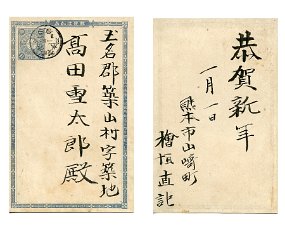 玉名郡築山村字築地
高田雪太郎殿
恭賀新年
一月一日
熊本市山崎町
檜垣直記